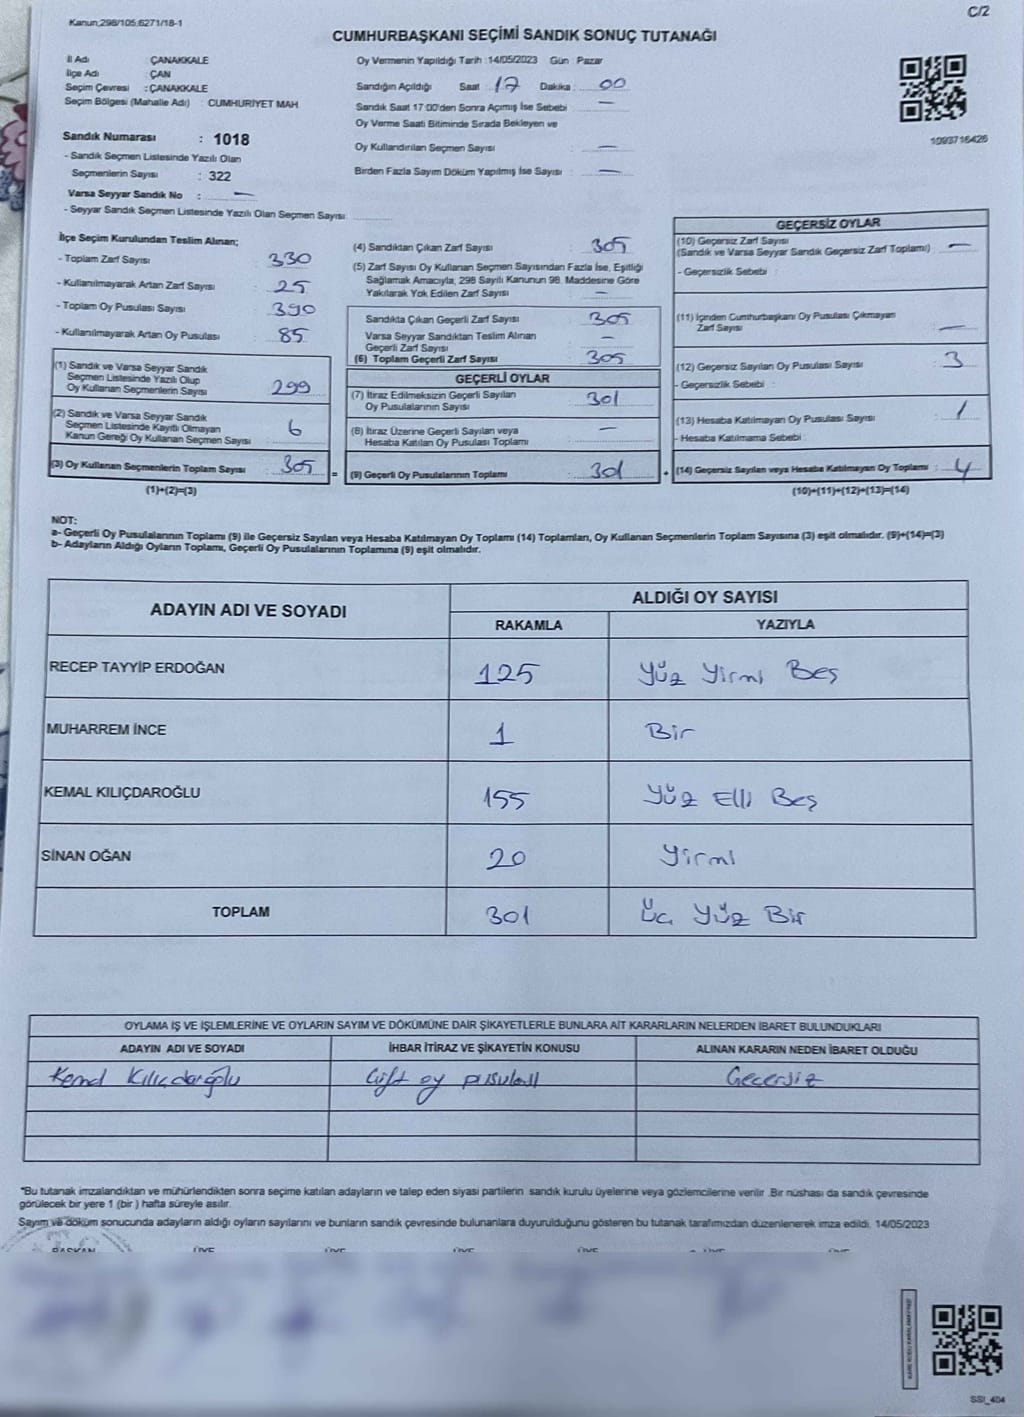 Kanun;298/105;6271/18-1
C/2
CUMHURBAŞKANI SEÇİMİ SANDIK SONUÇ TUTANAĞI
İl Adı ÇANAKKALE
İlçe Adı ÇAN
Seçim Çevresi : ÇANAKKALE
Seçim Bölgesi (Mahalle Adı) : CUMHURİYET MAH
Oy Vermenin Yapıldığı Tarih : 14/05/2023 Gün Pazar
Sandığın Açıldığı Saat : 17 Dakika : 00
Sandık Saat 17:00'den Sonra Açımış İse Sebebi —
Oy Verme Saati Bitiminde Sırada Bekleyen ve
Oy Kullandırılan Seçmen Sayısı : —
Birden Fazla Sayım Döküm Yapılmış İse Sayısı : —
1093716426
Sandık Numarası : 1018
- Sandık Seçmen Listesinde Yazılı Olan
Seçmenlerin Sayısı : 322
Varsa Seyyar Sandık No : —
- Seyyar Sandık Seçmen Listesinde Yazılı Olan Seçmen Sayısı
İlçe Seçim Kurulundan Teslim Alınan;
- Toplam Zarf Sayısı 330
- Kullanılmayarak Artan Zarf Sayısı : 25
- Toplam Oy Pusulası Sayısı : 390
- Kullanılmayarak Artan Oy Pusulası : 85
(1) Sandık ve Varsa Seyyar Sandık
Seçmen Listesinde Yazılı Olup
Oy Kullanan Seçmenlerin Sayısı : 299
(2) Sandık ve Varsa Seyyar Sandık
Seçmen Listesinde Kayıtlı Olmayan
Kanun Gereği Oy Kullanan Seçmen Sayısı : 6
(3) Oy Kullanan Seçmenlerin Toplam Sayısı : 305
(1)+(2)=(3)
(4) Sandıktan Çıkan Zarf Sayısı : 305
(5) Zarf Sayısı Oy Kullanan Seçmen Sayısından Fazla İse, Eşitliği
Sağlamak Amacıyla, 298 Sayılı Kanunun 98. Maddesine Göre
Yakılarak Yok Edilen Zarf Sayısı : —
Sandıkta Çıkan Geçerli Zarf Sayısı : 305
Varsa Seyyar Sandıktan Teslim Alınan
Geçerli Zarf Sayısı : —
(6) Toplam Geçerli Zarf Sayısı : 305
GEÇERLİ OYLAR
(7) İtiraz Edilmeksizin Geçerli Sayılan
Oy Pusulalarının Sayısı : 301
(8) İtiraz Üzerine Geçerli Sayılan veya
Hesaba Katılan Oy Pusulası Toplamı : —
= (9) Geçerli Oy Pusulalarının Toplamı : 301
GEÇERSİZ OYLAR
(10) Geçersiz Zarf Sayısı
(Sandık ve Varsa Seyyar Sandık Geçersiz Zarf Toplamı) : —
- Geçersizlik Sebebi :
(11) İçinden Cumhurbaşkanı Oy Pusulası Çıkmayan
Zarf Sayısı : —
(12) Geçersiz Sayılan Oy Pusulası Sayısı : 3
- Geçersizlik Sebebi :
(13) Hesaba Katılmayan Oy Pusulası Sayısı : 1
- Hesaba Katılmama Sebebi :
+ (14) Geçersiz Sayılan veya Hesaba Katılmayan Oy Toplamı : 4
(10)+(11)+(12)+(13)=(14)
NOT:
a- Geçerli Oy Pusulalarının Toplamı (9) ile Geçersiz Sayılan veya Hesaba Katılmayan Oy Toplamı (14) Toplamları, Oy Kullanan Seçmenlerin Toplam Sayısına (3) eşit olmalıdır. (9)+(14)=(3)
b- Adayların Aldığı Oyların Toplamı, Geçerli Oy Pusulalarının Toplamına (9) eşit olmalıdır.
ADAYIN ADI VE SOYADI
ALDIĞI OY SAYISI
RAKAMLA YAZIYLA
RECEP TAYYİP ERDOĞAN 125 Yüz Yirmi Beş
MUHARREM İNCE 1 Bir
KEMAL KILIÇDAROĞLU 155 Yüz Elli Beş
SİNAN OĞAN 20 Yirmi
TOPLAM 301 Üç Yüz Bir
OYLAMA İŞ VE İŞLEMLERİNE VE OYLARIN SAYIM VE DÖKÜMÜNE DAİR ŞİKAYETLERLE BUNLARA AİT KARARLARIN NELERDEN İBARET BULUNDUKLARI
ADAYIN ADI VE SOYADI İHBAR İTİRAZ VE ŞİKAYETİN KONUSU ALINAN KARARIN NEDEN İBARET OLDUĞU
Kemal Kılıçdaroğlu Çift oy pusulası Geçersiz
*Bu tutanak imzalandıktan ve mühürlendikten sonra seçime katılan adayların ve talep eden siyasi partilerin sandık kurulu üyelerine veya gözlemcilerine verilir. Bir nüshası da sandık çevresinde
görülecek bir yere 1 (bir ) hafta süreyle asılır.
Sayım ve döküm sonucunda adayların aldığı oyların sayılarını ve bunların sandık çevresinde bulunanlara duyurulduğunu gösteren bu tutanak tarafımızdan düzenlenerek imza edildi. 14/05/2023
BAŞKAN ÜYE ÜYE ÜYE ÜYE ÜYE ÜYE
SSI_404